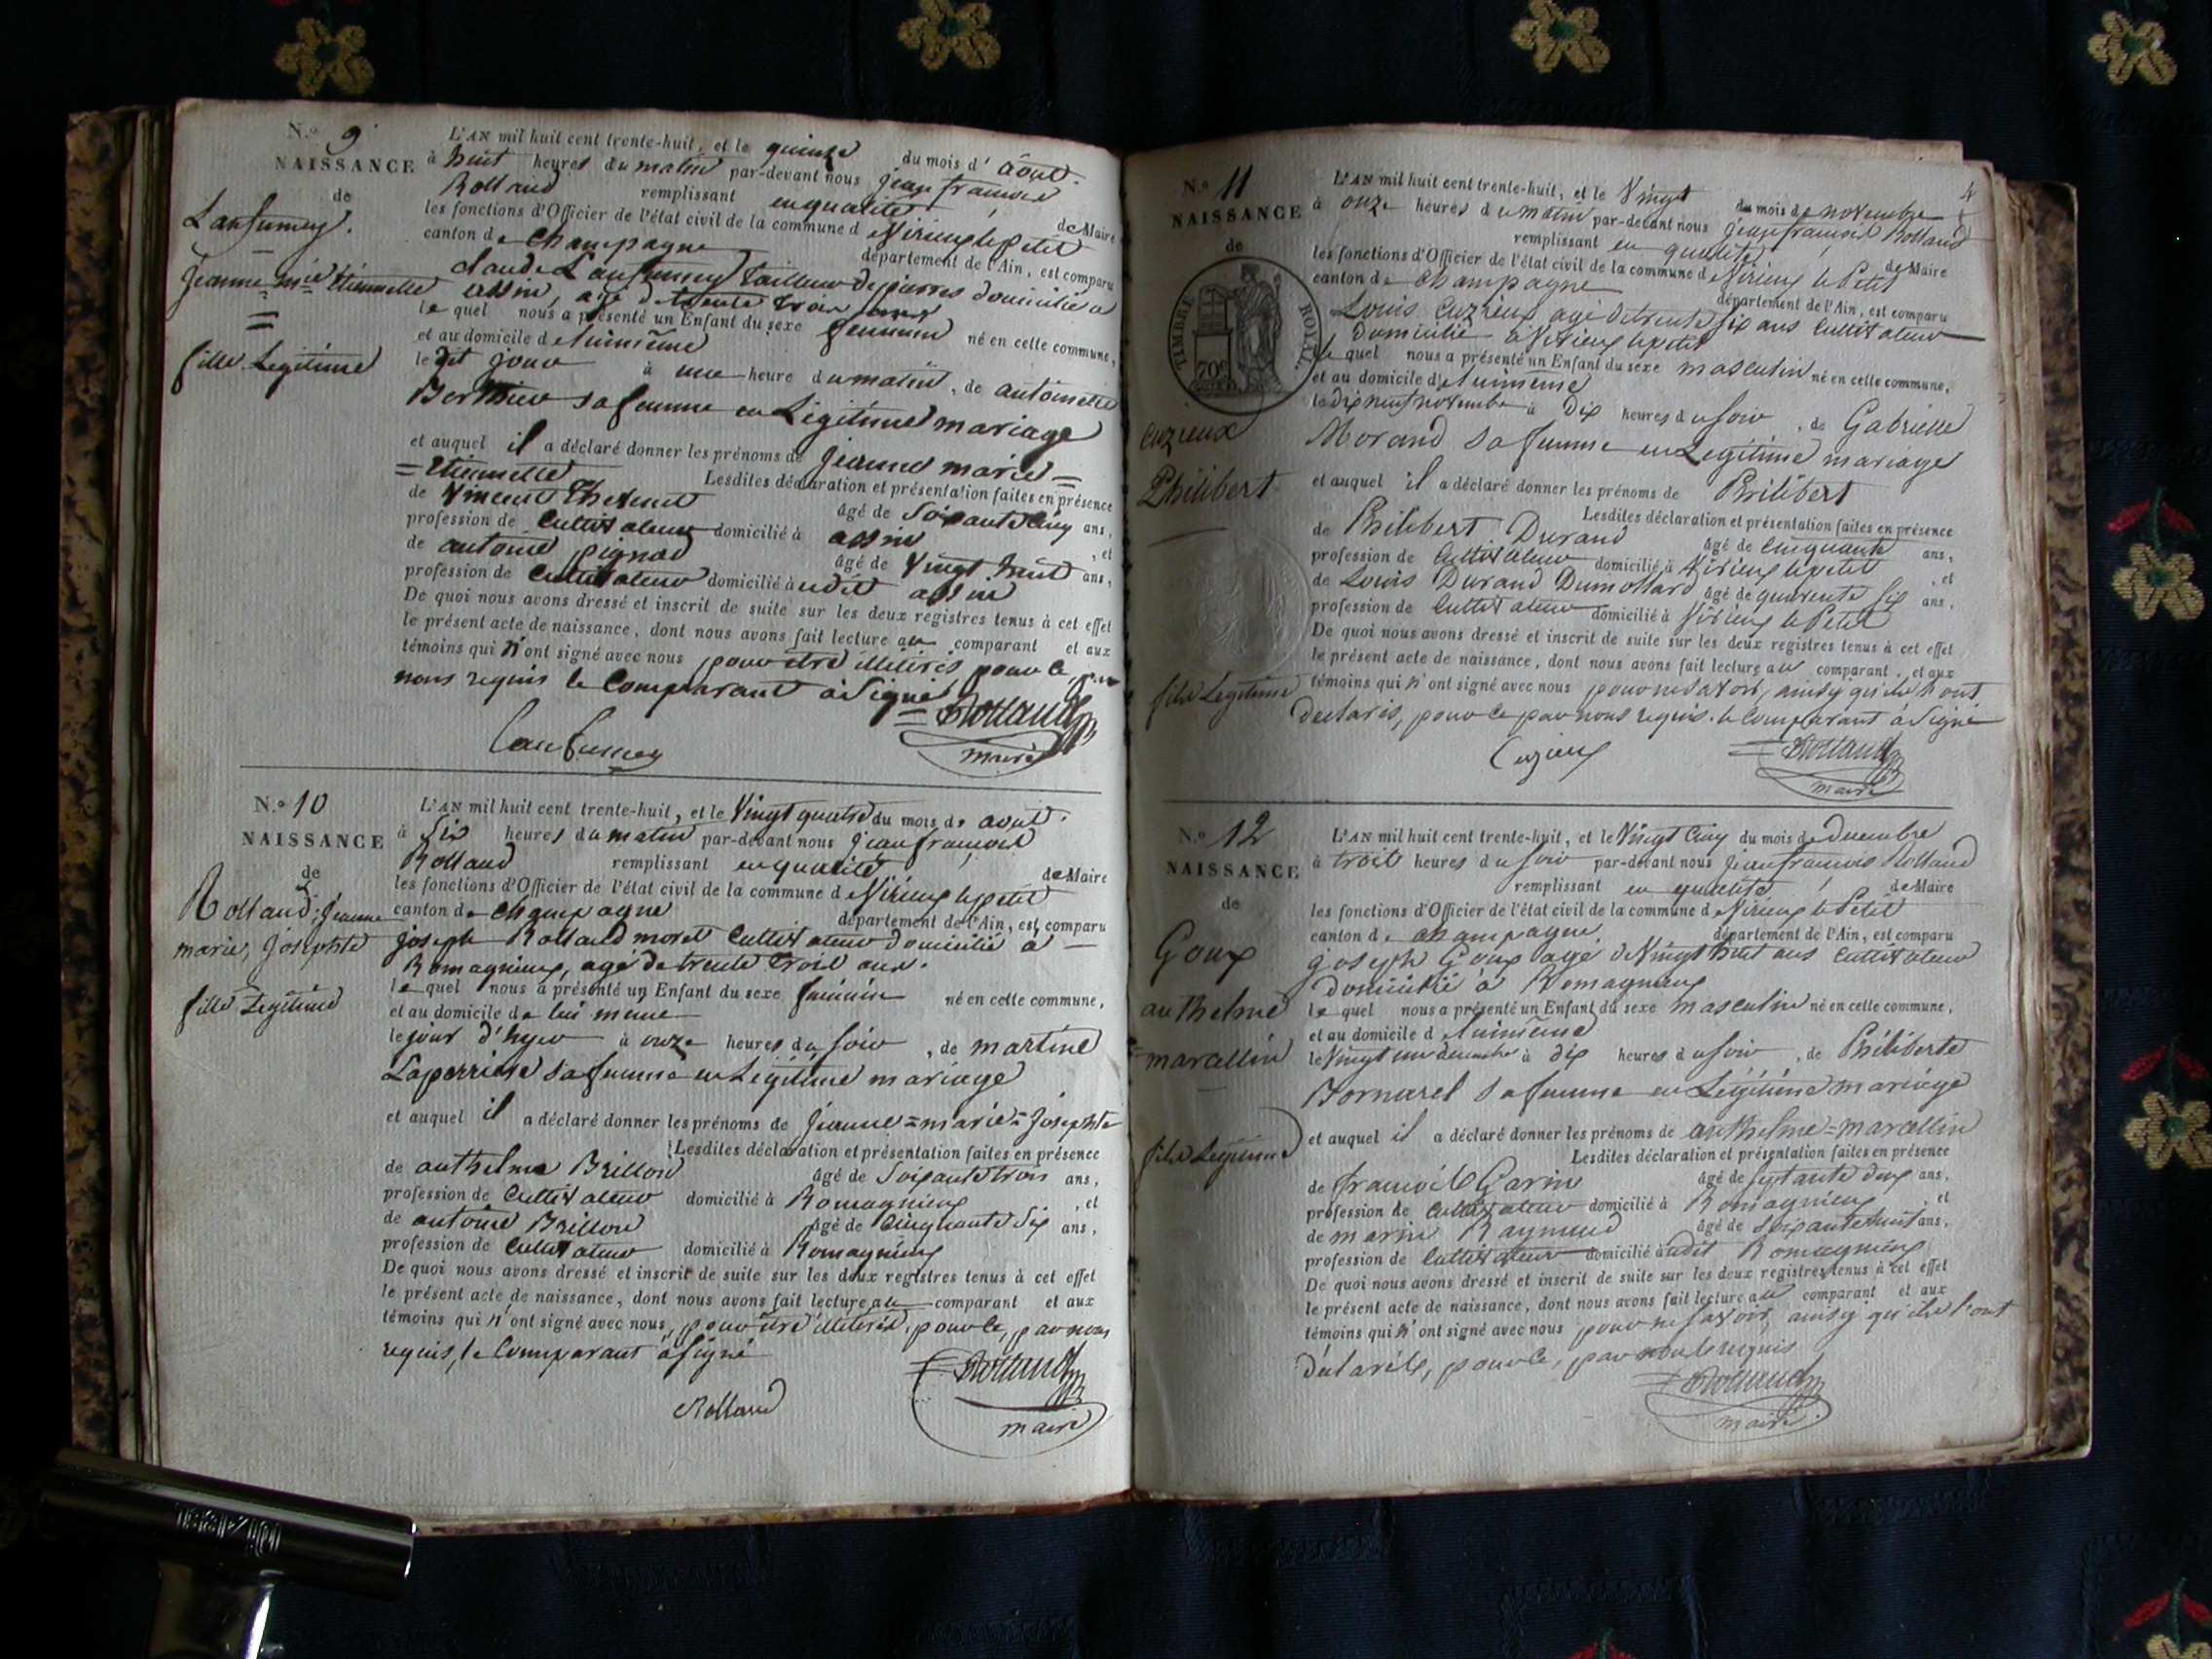 N.º 9
NAISSANCE
de
Lanfumey.
Jeanne mie Etiennette
fille Legitime
L'AN mil huit cent trente-huit, et le quinze du mois d' août.
à huit heures du matin par-devant nous jean françois
Rolland remplissant en qualité de Maire
les fonctions d'Officier de l'état civil de la commune d Virieux le petit
canton de Champagne département de l'Ain, est comparu
claude Lanfumey tailleur de pierres domicilié a
assin, agé de trente trois ans
lequel nous a présenté un Enfant du sexe feminin né en cette commune,
et au domicile de luimême
le dit jour à une heure du matin, de antoinette
Berthier sa femme en Légitime mariage
et auquel il a déclaré donner les prénoms de jeanne marie =
= Etiennette Lesdites déclaration et présentation faites en présence
de Vincent Thevenet âgé de Soixante Cinq ans,
profession de Cultivateur domicilié à assin , et
de antoine pignod âgé de Vingt huit ans,
profession de Cultivateur domicilié à udit assin
De quoi nous avons dressé et inscrit de suite sur les deux registres tenus à cet effet
le présent acte de naissance, dont nous avons fait lecture au comparant et aux
témoins qui n'ont signé avec nous pour être illitérés, pour ce, par
nous requis le Comparant à Signé
Lanfumey
= Rolland
maire
N.º 10
NAISSANCE
de
Rolland, jeanne
marie, josephte
fille Legitime
L'AN mil huit cent trente-huit, et le Vingt quatre du mois de août.
à Six heures du matin par-devant nous jean françois
Rolland remplissant en qualité de Maire
les fonctions d'Officier de l'état civil de la commune d Virieux le petit
canton de Champagne département de l'Ain, est comparu
joseph Rolland moret Cultivateur domicilié à
Romagnieux, agé de trente trois ans.
lequel nous a présenté un Enfant du sexe feminin né en cette commune,
et au domicile de lui meme
le jour d'hyer à onze heures du soir , de martine
Laperriere sa femme en Légitime mariage
et auquel il a déclaré donner les prénoms de jeanne = marie = josephte
Lesdites déclaration et présentation faites en présence
de anthelme Brillon âgé de Soixante trois ans,
profession de Cultivateur domicilié à Romagnieux , et
de antoine Brillon âgé de Cinquante Six ans,
profession de Cultivateur domicilié à Romagnieux
De quoi nous avons dressé et inscrit de suite sur les deux registres tenus à cet effet
le présent acte de naissance, dont nous avons fait lecture au comparant et aux
témoins qui n'ont signé avec nous, pour être illitérés, pour ce, par nous
requis, le Comparant à signé
Rolland
= Rolland
maire
N.º 11
NAISSANCE
de
TIMBRE ROYAL.
70c
Cuzieux
Philibert
fils Legitime
L'AN mil huit cent trente-huit, et le Vingt du mois de novembre
à onze heures du matin par-devant nous jean françois Rolland
remplissant en qualité de Maire
les fonctions d'Officier de l'état civil de la commune d Virieux le Petit
canton de Champagne département de l'Ain, est comparu
Louis Cuzieux agé de trente Six ans Cultivateur
domicilié à Virieux lepetit
lequel nous a présenté un Enfant du sexe masculin né en cette commune,
et au domicile de luimême
le dix neuf novembre à Dix heures du soir , de Gabrielle
Morand sa femme en Légitime mariage
et auquel il a déclaré donner les prénoms de Philibert
Lesdites déclaration et présentation faites en présence
de Philibert Durand âgé de Cinquante ans,
profession de Cultivateur domicilié à Virieux lepetit , et
de Louis Durand Dumollard âgé de quarente Six ans,
profession de Cultivateur domicilié à Virieux le Petit
De quoi nous avons dressé et inscrit de suite sur les deux registres tenus à cet effet
le présent acte de naissance, dont nous avons fait lecture au comparant, et aux
témoins qui n'ont signé avec nous pour ne savoir, ainsy qu'ils l'ont
declarés, pour ce par nous requis. le Comparant à Signé
Cuzieux
= Rolland
maire
N.º 12
NAISSANCE
de
Goux
anthelme
= marcellin
fils Legitime
L'AN mil huit cent trente-huit, et le Vingt Cinq du mois de decembre
à trois heures du soir par-devant nous jean francois Rolland
remplissant en qualité de Maire
les fonctions d'Officier de l'état civil de la commune d Virieux le Petit
canton de champagne département de l'Ain, est comparu
joseph Goux agé de Vingt huit ans Cultivateur
domicilié à Romagnieux
lequel nous a présenté un Enfant du sexe masculin né en cette commune,
et au domicile d luimême
le Vingt un decembre à dix heures du soir , de Philiberte
Bornarel sa femme en Légitime mariage
et auquel il a déclaré donner les prénoms de anthelme = marcellin
Lesdites déclaration et présentation faites en présence
de francois Garin âgé de septante deux ans,
profession de Cultivateur domicilié à Romagnieux , et
de marin Raymond âgé de soixante huit ans,
profession de Cultivateur domicilié à udit Romagnieux
De quoi nous avons dressé et inscrit de suite sur les deux registres tenus à cet effet
le présent acte de naissance, dont nous avons fait lecture au comparant et aux
témoins qui n'ont signé avec nous pour ne savoir, ainsy qu'ils l'ont
déclarés, pour ce, par nous requis
= Rolland
maire